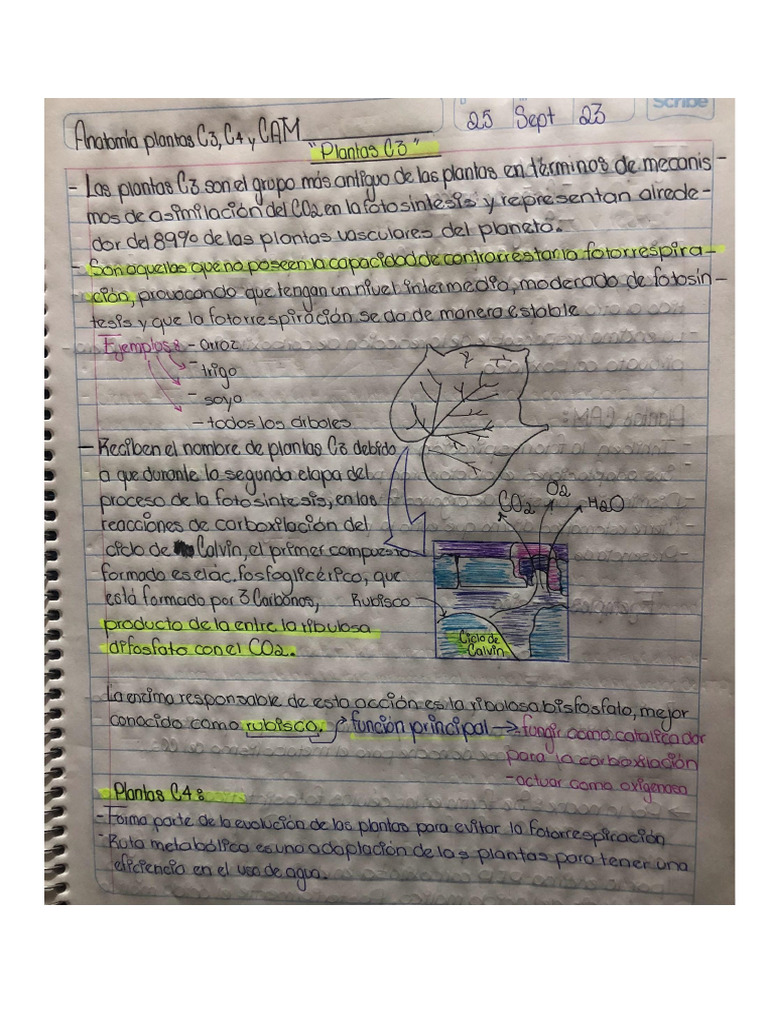 Scribe
25 Sept 23
Anatomía plantas C3, C4 y CAM
"Plantas C3"
- Las plantas C3 son el grupo más antiguo de las plantas en términos de mecanis -
mos de asimilación del CO2 en la fotosíntesis y representan alrede -
dor del 89% de las plantas vasculares del planeta.
- Son aquellas que no poseen la capacidad de contrarrestar la fotorrespira -
ción, provocando que tengan un nivel intermedio, moderado de fotosín -
tesis y que la fotorrespiración se da de manera estable
Ejemplos: - arroz
- trigo
- soya
- todos los árboles
- Reciben el nombre de plantas C3 debido
a que durante la segunda etapa del
proceso de la fotosíntesis, en las
reacciones de carboxilación del
ciclo de Calvin, el primer compuesto
formado es el ác. fosfoglicérico, que
está formado por 3 Carbonos,
producto de la entre la ribulosa
difosfato con el CO2.
CO2 O2 H2O
Rubisco
Ciclo de
Calvin
La enzima responsable de esta acción es la ribulosa bisfosfato, mejor
conocido como rubisco. función principal → fungir como catalizador
para la carboxilación
- actuar como oxigenasa
Plantas C4:
- Forma parte de la evolución de las plantas para evitar la fotorrespiración
- Ruta metabólica es una adaptación de las plantas para tener una
eficiencia en el uso de agua.